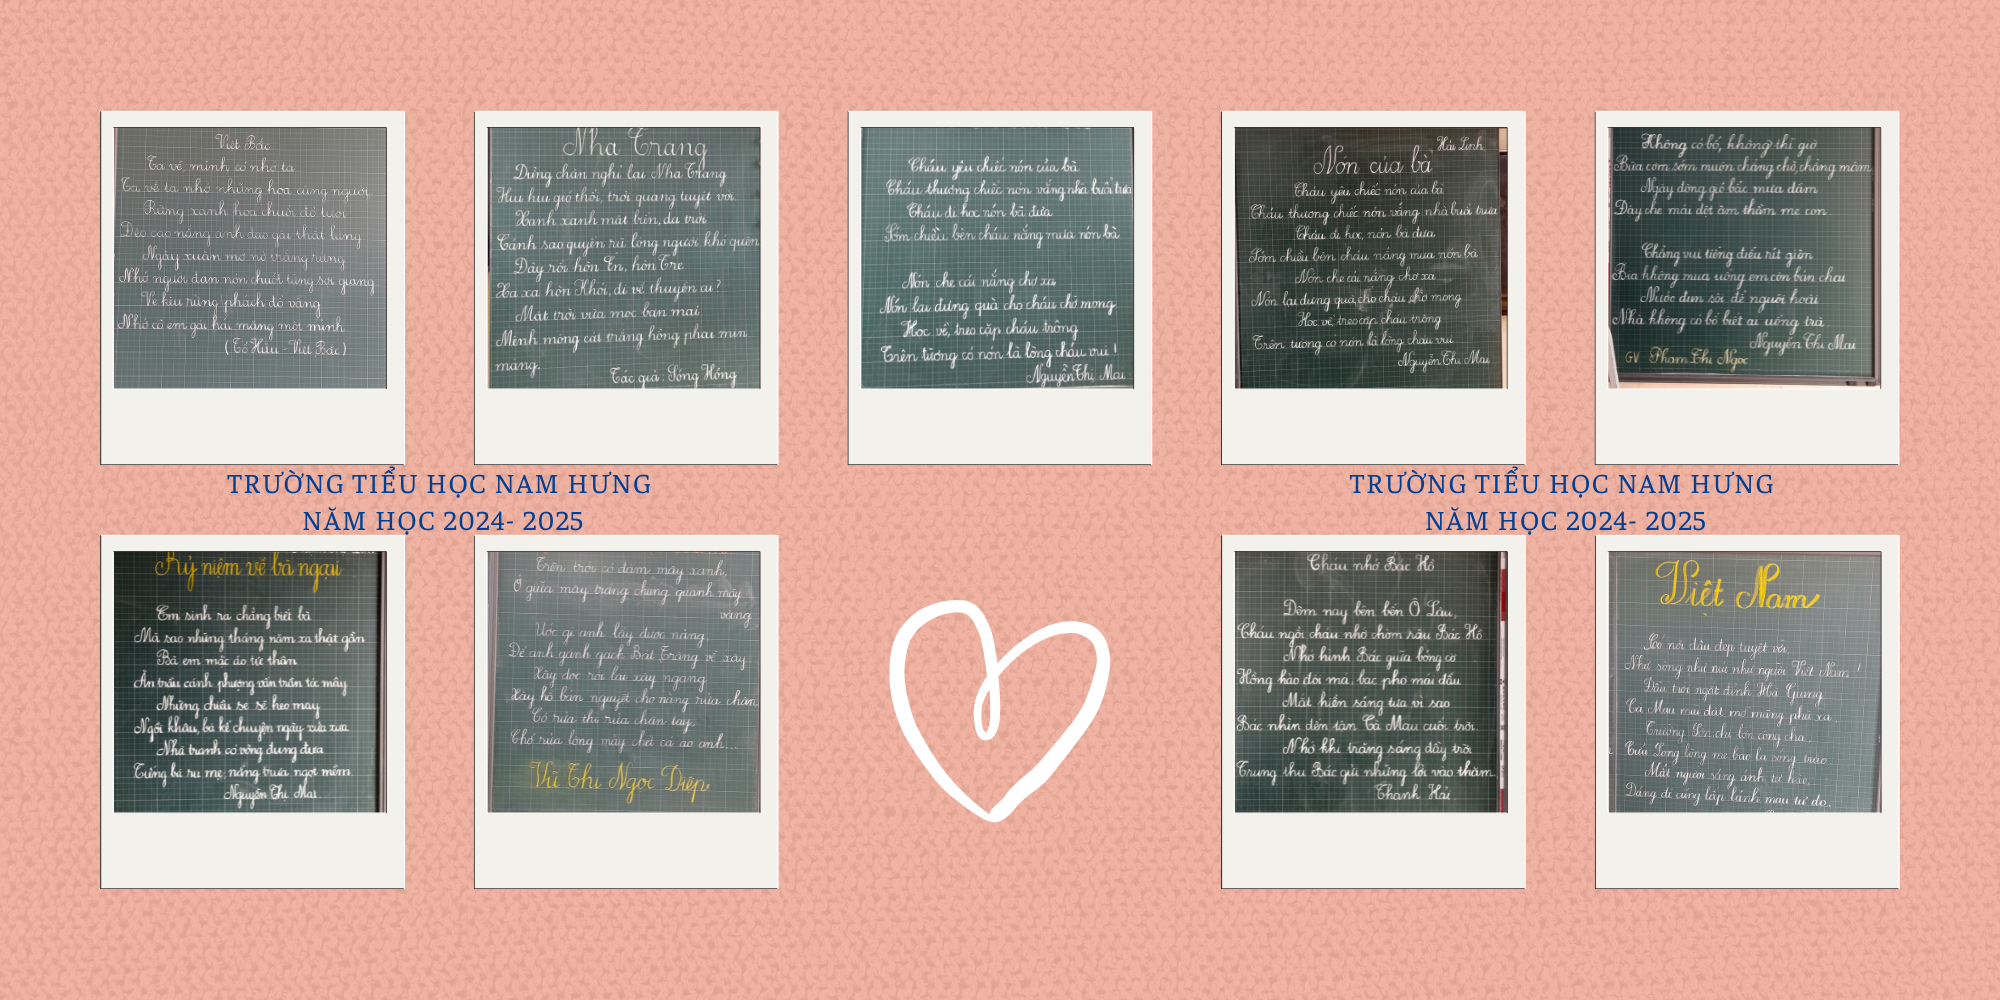 Việt Bắc
Ta về, mình có nhớ ta
Ta về ta nhớ những hoa cùng người
Rừng xanh hoa chuối đỏ tươi
Đèo cao nắng ánh dao gài thắt lưng
Ngày xuân mơ nở trắng rừng
Nhớ người đan nón chuốt từng sợi giang
Ve kêu rừng phách đổ vàng
Nhớ cô em gái hái măng một mình
(Tố Hữu - Việt Bắc)
Nha Trang
Dừng chân nghỉ lại Nha Trang
Hiu hiu gió thổi, trời quang tuyệt vời.
Xanh xanh mặt biển, da trời
Cảnh sao quyến rũ lòng người khó quên
Đây rồi hòn Én, hòn Tre
Xa xa hòn Khói, đi về thuyền ai?
Mặt trời vừa mọc ban mai
Mênh mông cát trắng hồng phai mịn
màng.
Tác giả: Sóng Hồng
Cháu yêu chiếc nón của bà
Cháu thương chiếc nón vắng nhà buổi trưa
Cháu đi học nón bà đưa
Sớm chiều bên cháu nắng mưa nón bà
Nón che cái nắng chợ xa
Nón lại đựng quà cho cháu chờ mong
Học về, treo cặp cháu trông
Trên tường có nón là lòng cháu vui!
Nguyễn Thị Mai
Hải Linh
Nón của bà
Cháu yêu chiếc nón của bà
Cháu thương chiếc nón vắng nhà buổi trưa
Cháu đi học, nón bà đưa
Sớm chiều bên cháu nắng mưa nón bà
Nón che cái nắng chợ xa
Nón lại đựng quà cho cháu chờ mong
Học về treo cặp, cháu trông
Trên tường có nón là lòng cháu vui
Nguyễn Thị Mai
Không có bố, không thì giờ
Bữa cơm sớm muộn chẳng chờ, chẳng mâm
Ngày đông gió bấc mưa dầm
Đây che mái dột âm thầm mẹ con.
Chẳng vui tiếng điếu rít giòn
Bia không mua uống em còn bán chai
Nước đun sôi để nguội hoài
Nhà không có bố biết ai uống trà
Nguyễn Thị Mai
GV Phạm Thị Ngọc
TRƯỜNG TIỂU HỌC NAM HƯNG
NĂM HỌC 2024- 2025
TRƯỜNG TIỂU HỌC NAM HƯNG
NĂM HỌC 2024- 2025
Kỷ niệm về bà ngoại
Em sinh ra chẳng biết bà
Mà sao những tháng năm xa thật gần
Bà em mặc áo tứ thân
Ăn trầu cánh phượng vấn trần tóc mây
Những chiều se sẽ heo may
Ngồi khâu, bà kể chuyện ngày xửa xưa
Nhà tranh có võng đung đưa
Tiếng bà ru mẹ, nắng trưa ngọt mềm.
Nguyễn Thị Mai
Trên trời có đám mây xanh,
Ở giữa mây trắng chung quanh mây
vàng
Ước gì anh lấy được nàng
Để anh gánh gạch Bát Tràng về xây
Xây dọc rồi lại xây ngang
Xây hồ bán nguyệt cho nàng rửa chân
Có rửa thì rửa chân tay,
Chớ rửa lông mày chết cá ao anh...
Vũ Thị Ngọc Diệp
Cháu nhớ Bác Hồ
Đêm nay bên bến Ô Lâu,
Cháu ngồi cháu nhớ chòm râu Bác Hồ
Nhớ hình Bác giữa bóng cờ
Hồng hào đôi má, bạc phơ mái đầu
Mắt hiền sáng tựa vì sao
Bác nhìn đến tận Cà Mau cuối trời.
Nhớ khi trăng sáng đầy trời
Trung thu Bác gửi những lời vào thăm.
Thanh Hải
Việt Nam
Có nơi đâu đẹp tuyệt vời
Như sông như núi như người Việt Nam!
Đầu trời ngất đỉnh Hà Giang
Cà Mau cuối đất mỡ màng phù sa
Trường Sơn: chí lớn công cha.
Cửu Long lòng mẹ bao la sóng trào
Mặt người sáng ánh tự hào,
Dáng đi cũng lấp lánh màu tự do.